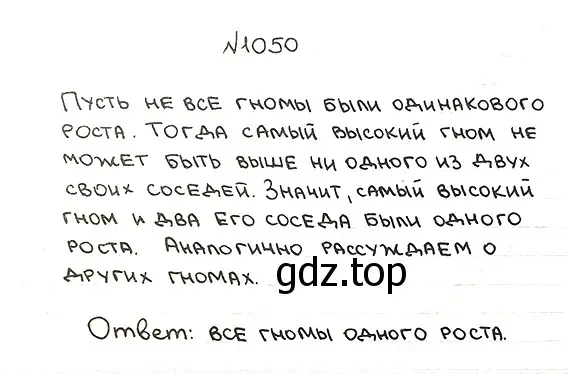 №1050
Пусть не все гномы были одинакового
роста. Тогда самый высокий гном не
может быть выше ни одного из двух
своих соседей. Значит, самый высокий
гном и два его соседа были одного
роста. Аналогично рассуждаем о
других гномах.
gdz.top
Ответ: все гномы одного роста.